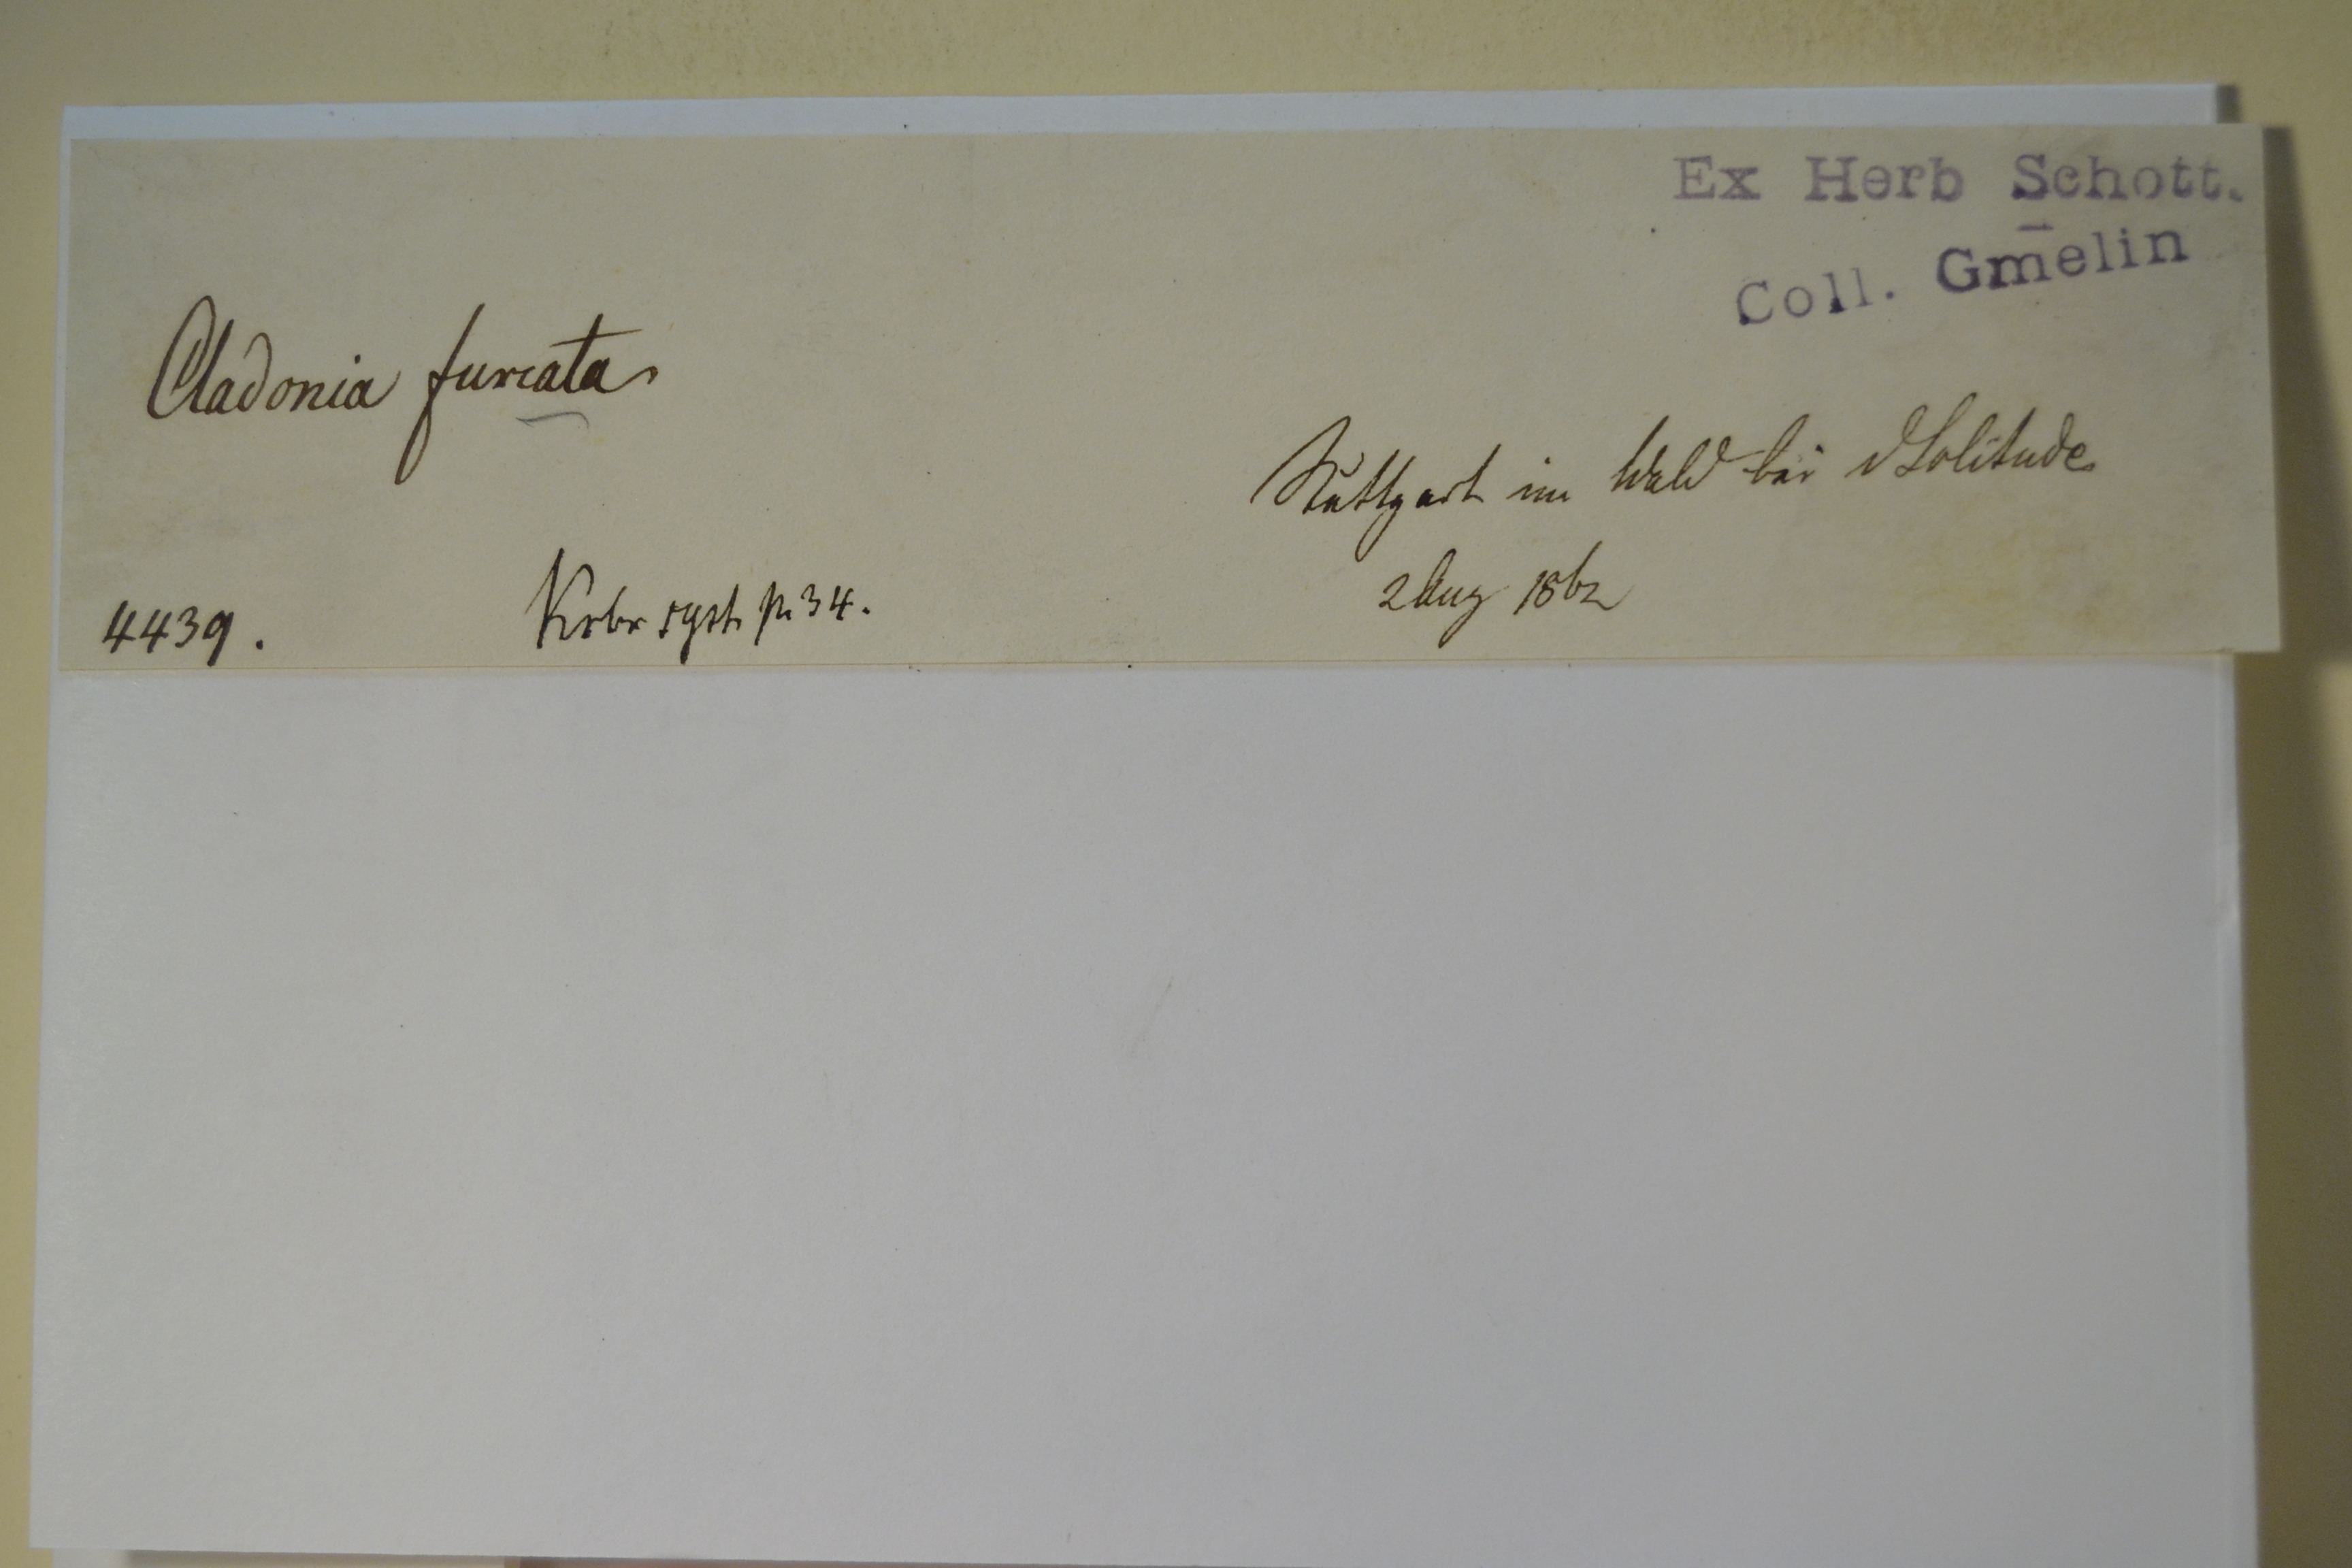 Ex Herb Schott.
Coll. Gmelin
Cladonia furcata
Stuttgart im Wald bei d Solitude
2 Aug 1862
4439.
Krbr syst. p. 34.